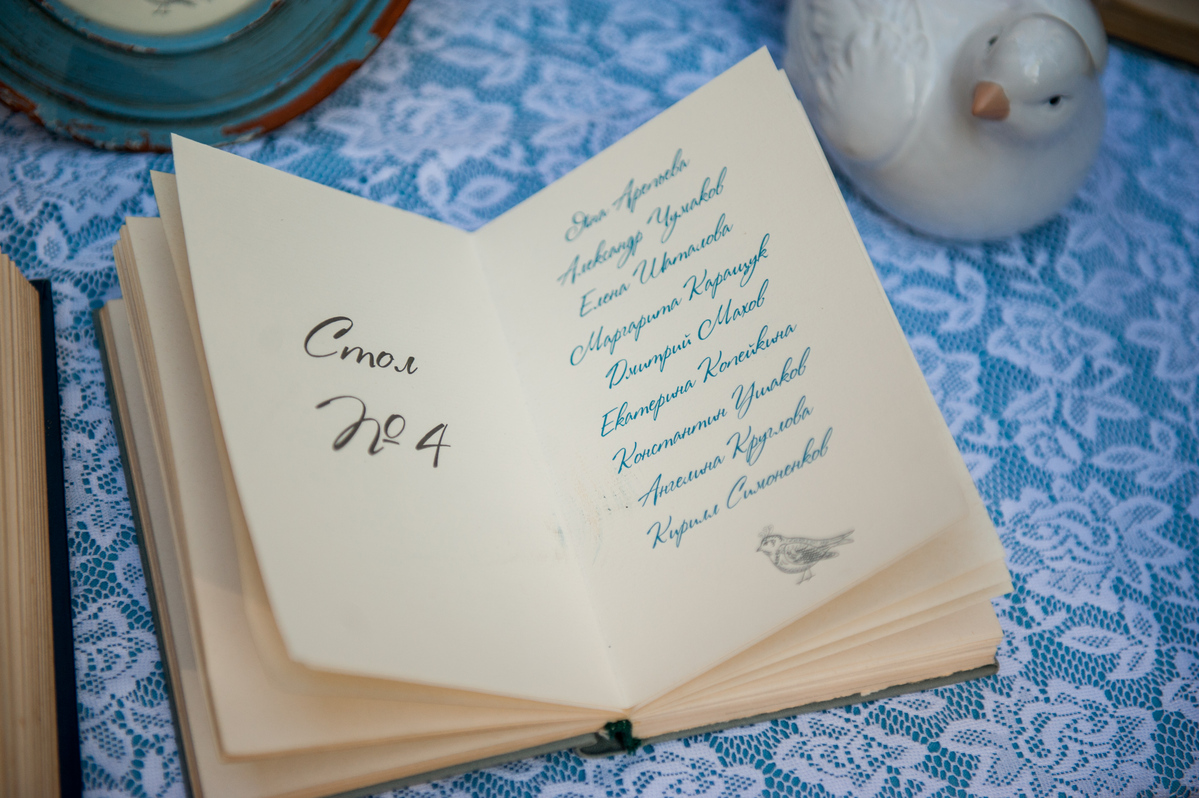 Стол
№ 4
Арефьева
Александр Чумаков
Елена Шаталова
Маргарита Каращук
Дмитрий Махов
Екатерина Копейкина
Константин Ушаков
Ангелина Круглова
Кирилл Симоненков